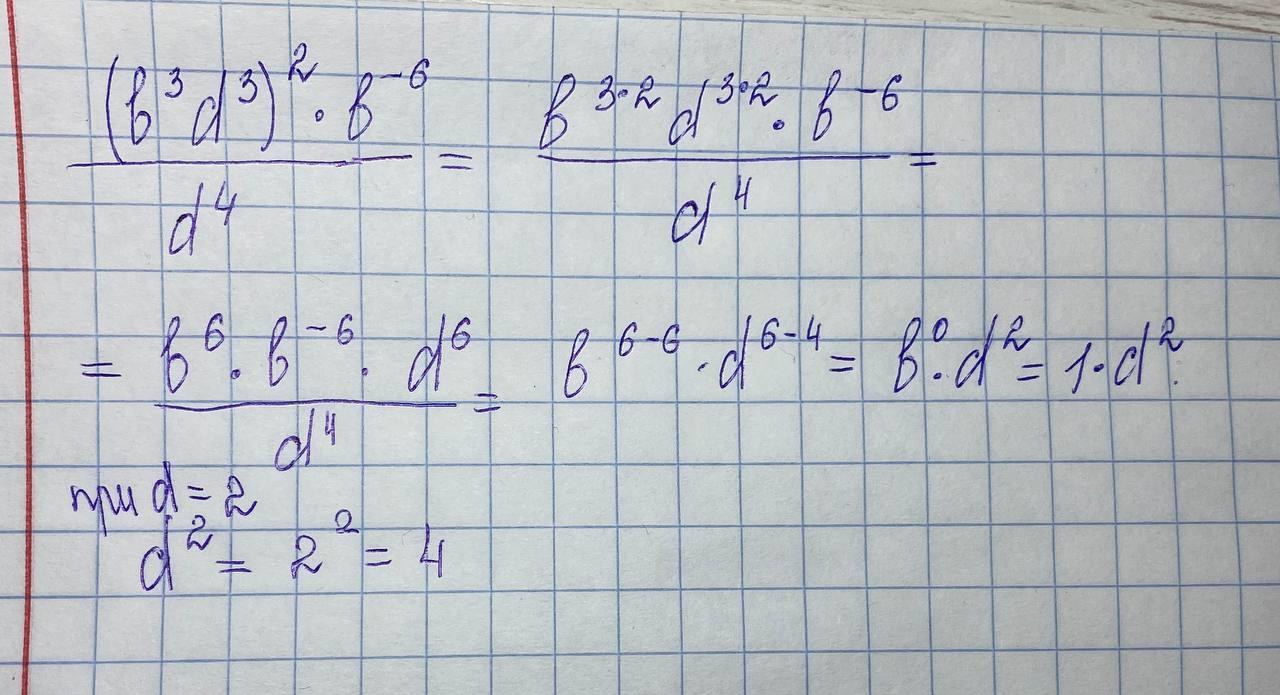 (b³d³)² · b⁻⁶ / d⁴ = b³˙²d³˙² · b⁻⁶ / d⁴ =
= b⁶ · b⁻⁶ · d⁶ / d⁴ = b⁶⁻⁶ · d⁶⁻⁴ = b⁰ · d² = 1 · d².
при d = 2
d² = 2² = 4